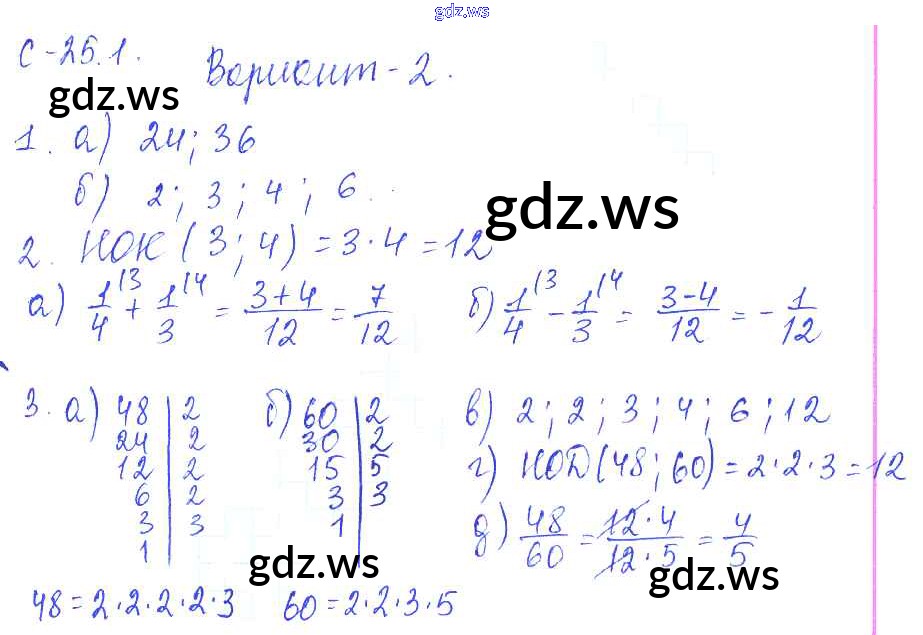 gdz.ws
С-25.1. Вариант-2.
gdz.ws
1. а) 24; 36
б) 2; 3; 4; 6.
gdz.ws
2. НОК (3; 4) = 3·4 = 12
а) 1/4 |3 + 1/3 |4 = 3+4/12 = 7/12 б) 1/4 |3 - 1/3 |4 = 3-4/12 = - 1/12
3. а) 48 | 2 б) 60 | 2 в) 2; 2; 3; 4; 6; 12
24 | 2 30 | 2
12 | 2 15 | 5 г) НОД (48; 60) = 2·2·3 = 12
6 | 2 3 | 3
3 | 3 1 | д) 48/60 = 12·4/12·5 = 4/5
1 |
gdz.ws gdz.ws
48 = 2·2·2·2·3 60 = 2·2·3·5